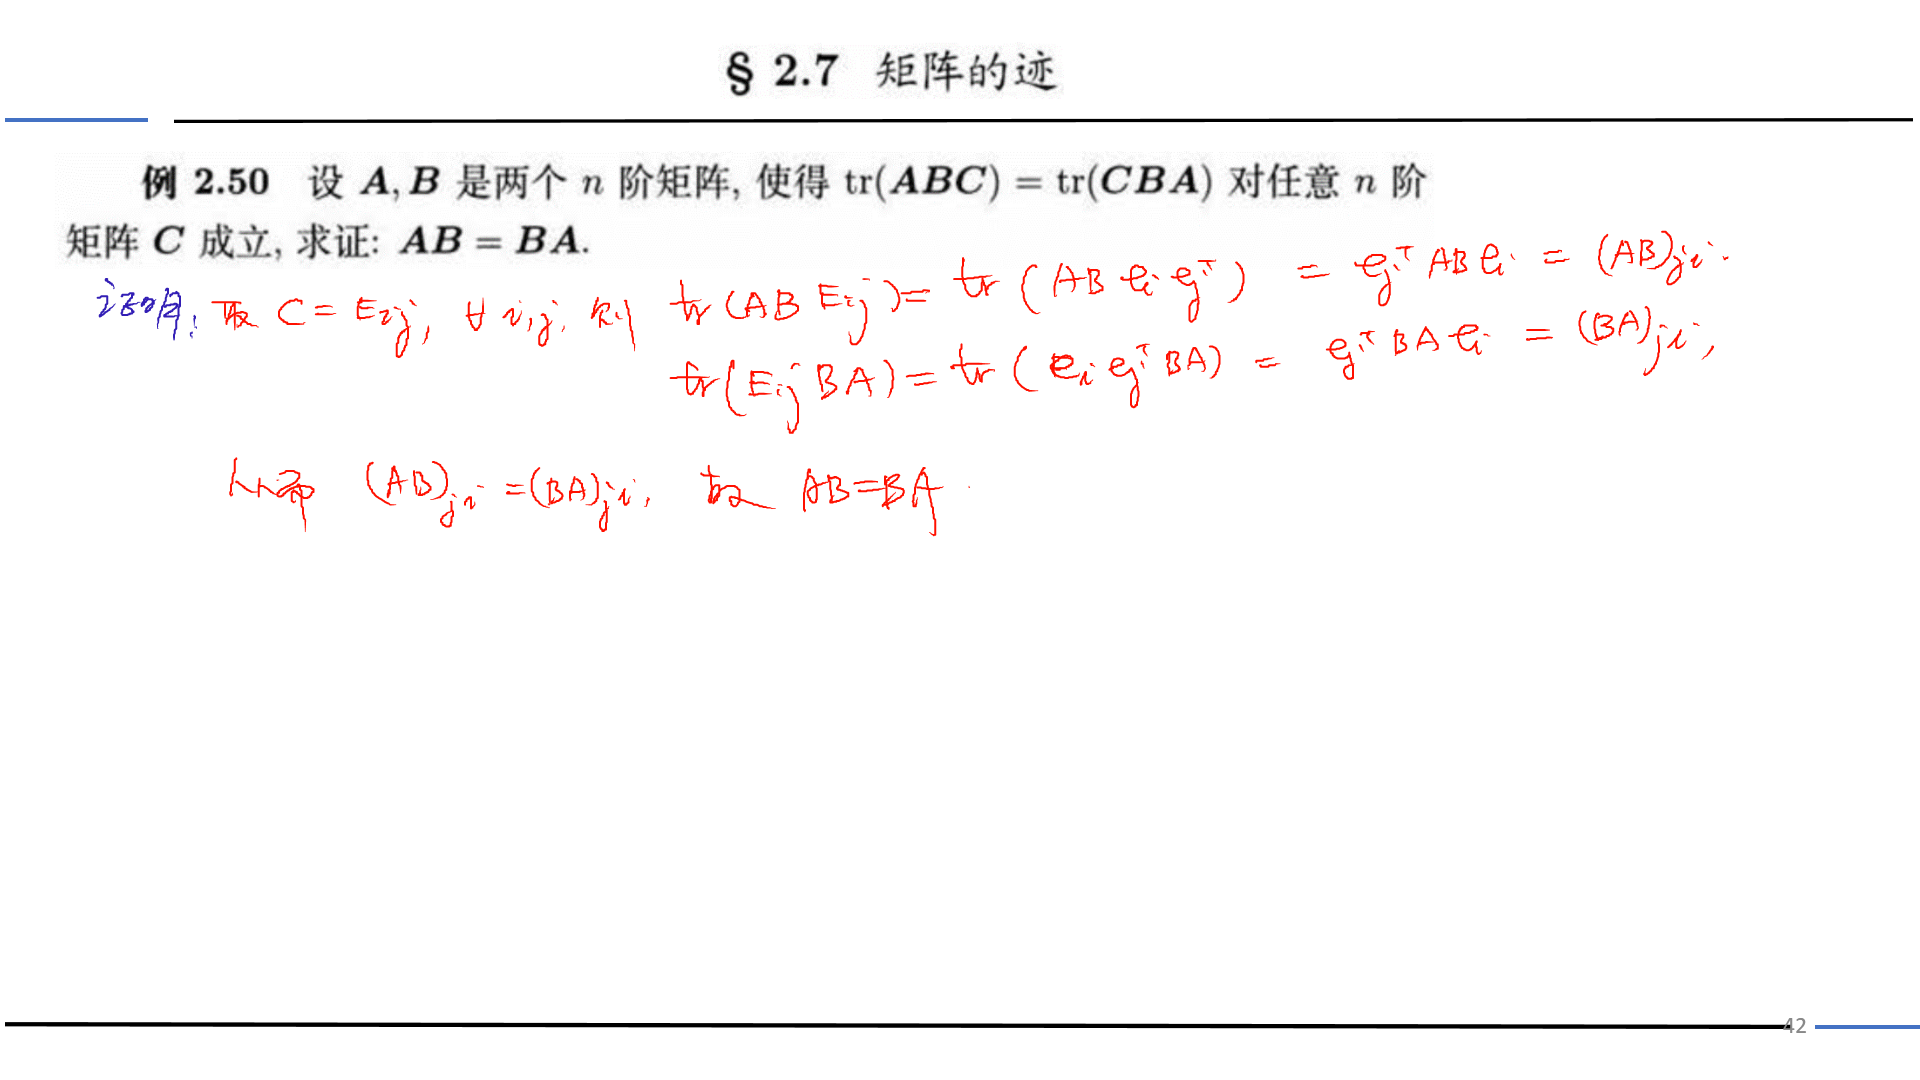 § 2.7 矩阵的迹
例 2.50 设 A, B 是两个 n 阶矩阵, 使得 tr(ABC) = tr(CBA) 对任意 n 阶
矩阵 C 成立, 求证: AB = BA.
证明: 取 C = Eij, ∀ i,j, 则 tr(AB Eij) = tr(AB ei ejᵀ) = ejᵀ AB ei = (AB)ji.
tr(Eij BA) = tr(ei ejᵀ BA) = ejᵀ BA ei = (BA)ji,
从而 (AB)ji = (BA)ji, 故 AB=BA.
42